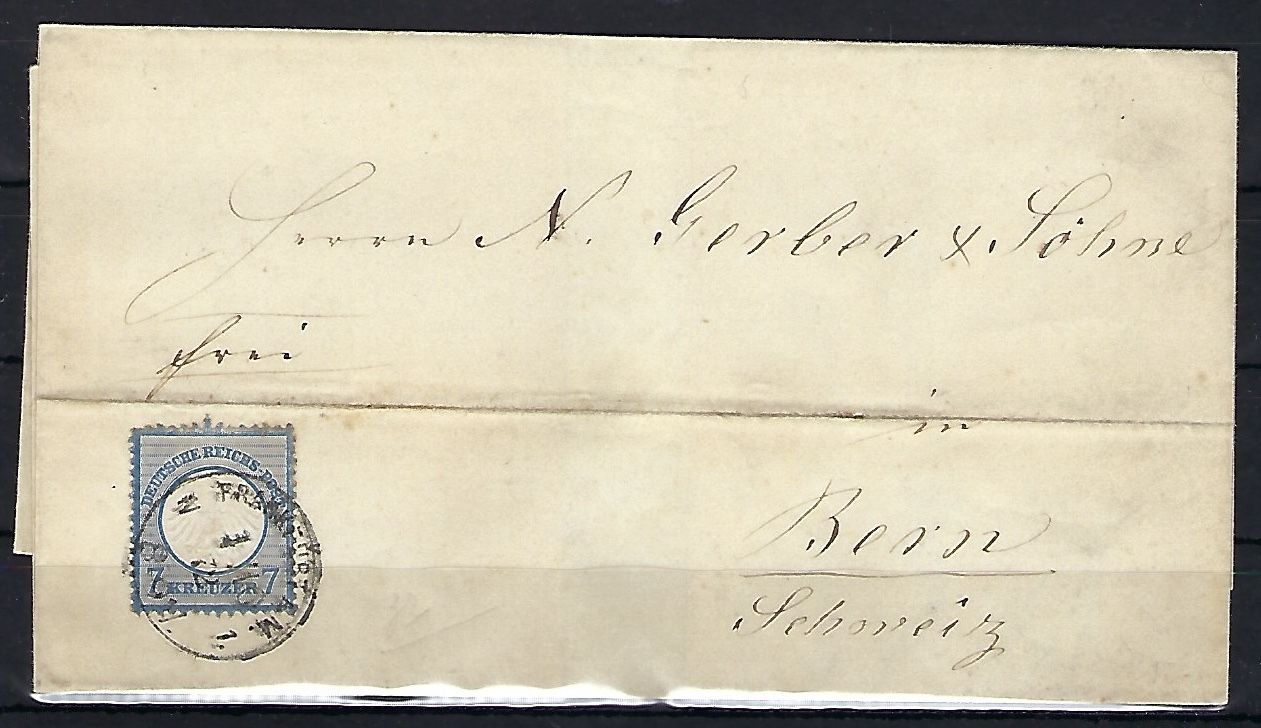 Herrn N. Gerber & Söhne
frei
in
Bern
Schweiz
DEUTSCHE REICHS-POST
7 KREUZER 7
FRANKFURT A M.